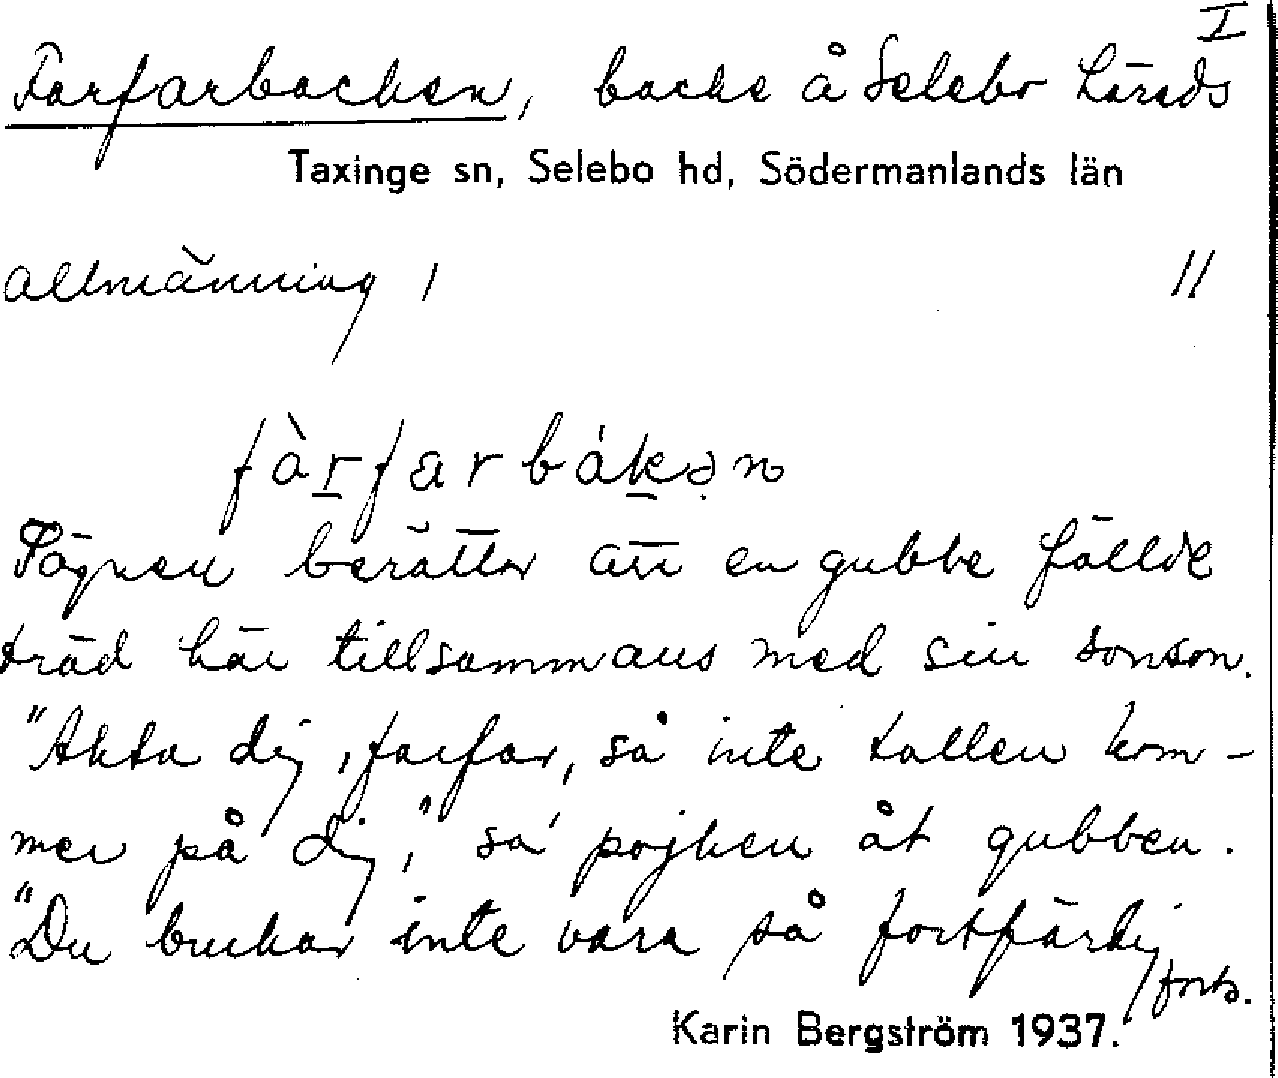 I
Farfarbacken, backe å Selebo härads
Taxinge sn, Selebo hd, Södermanlands län
allmänning 1 11
fàrfarbákən
Sägnen berättar att en gubbe fällde
träd här tillsammans med sin sonson.
"Akta dig, farfar, så inte tallen kom-
mer på dig," sa' pojken åt gubben.
"Du brukar inte vara så fortfärdig
forts.
Karin Bergström 1937.